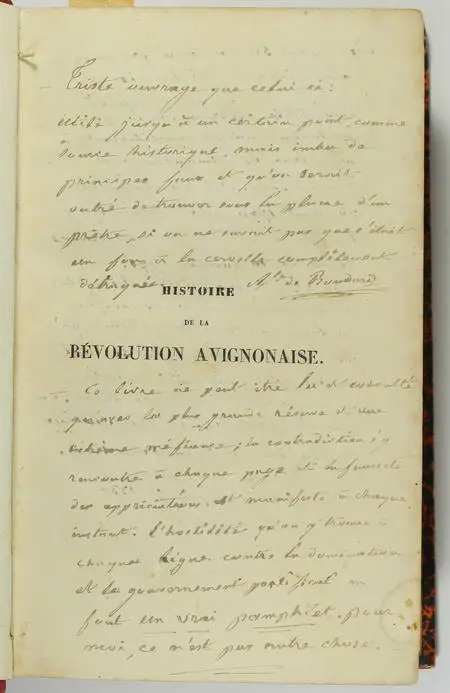 Triste ouvrage que celui ci:
utile jusqu'à un certain point comme
source historique, mais imbu de
principes faux et qu'on serait
outré de trouver sous la plume d'un
prêtre, si on ne savait pas que c'était
un fou à la cervelle complètement
détraquée. Ate de
HISTOIRE
DE LA
RÉVOLUTION AVIGNONAISE.
Ce livre ne peut être lu et consulté
qu'avec la plus grande réserve et une
extrême méfiance; la contradiction s'y
rencontre à chaque page et la fausseté
des appréciations se manifeste à chaque
instant. L'hostilité qu'on y trouve à
chaque ligne contre la domination
et le gouvernement pontifical en
font un vrai pamphlet. pour
moi, ce n'est pas autre chose.